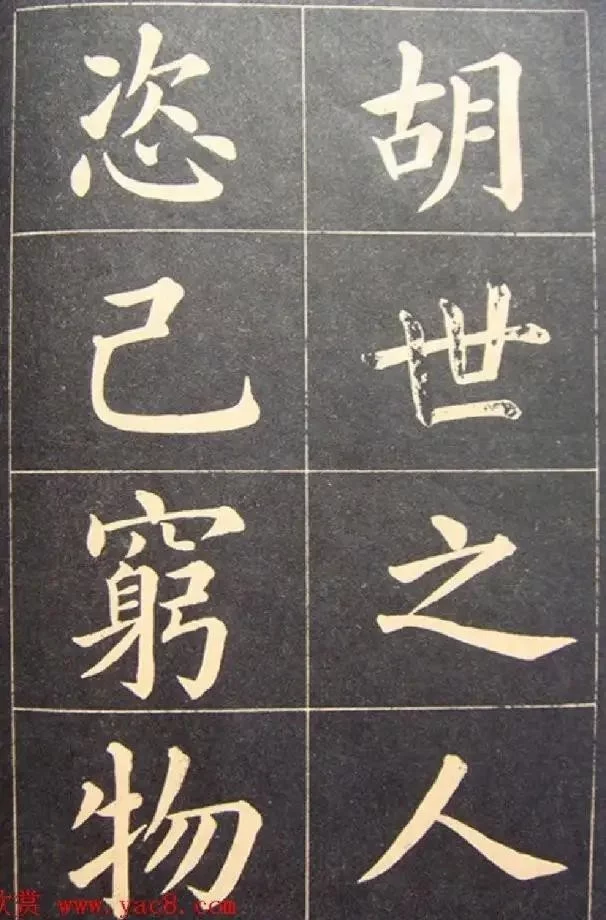 胡世之人
恣己窮物
欣赏 www.yac8.com